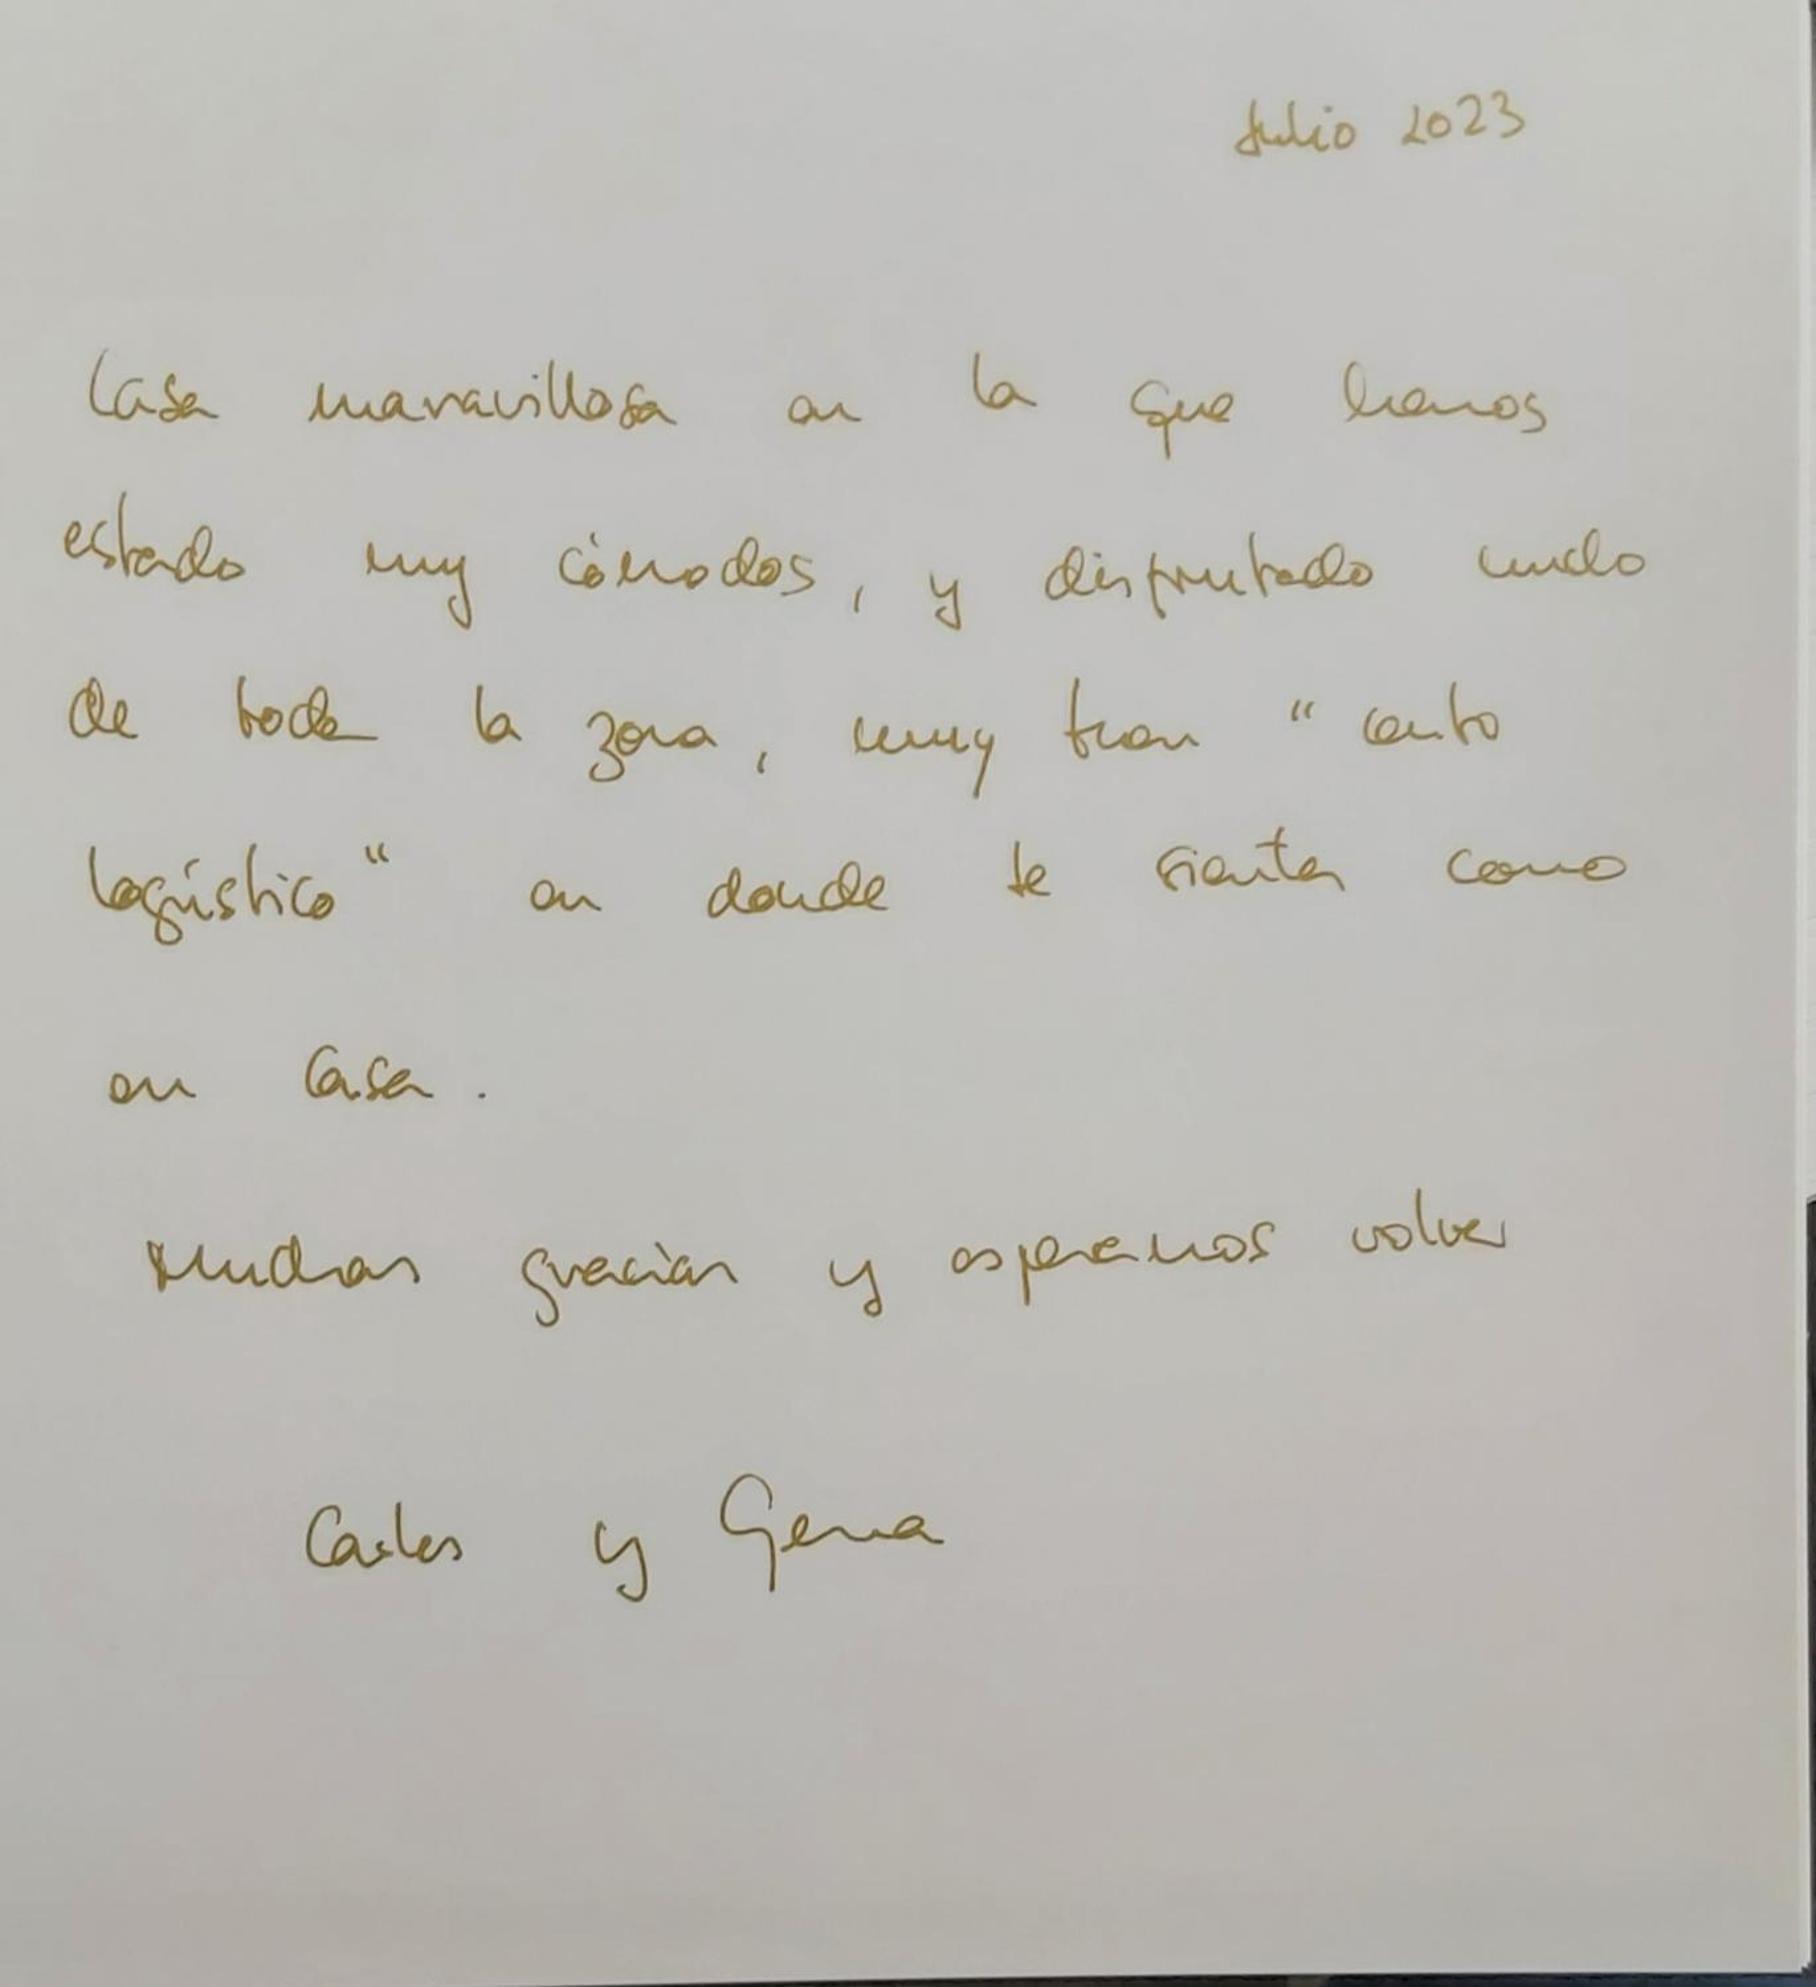 Julio 2023
Casa maravillosa en la que hemos
estado muy cómodos, y disfrutado mucho
de toda la zona, muy buen "centro
logístico" en donde te sientes como
en casa.
Muchas gracias y esperamos volver
Carlos y Gema